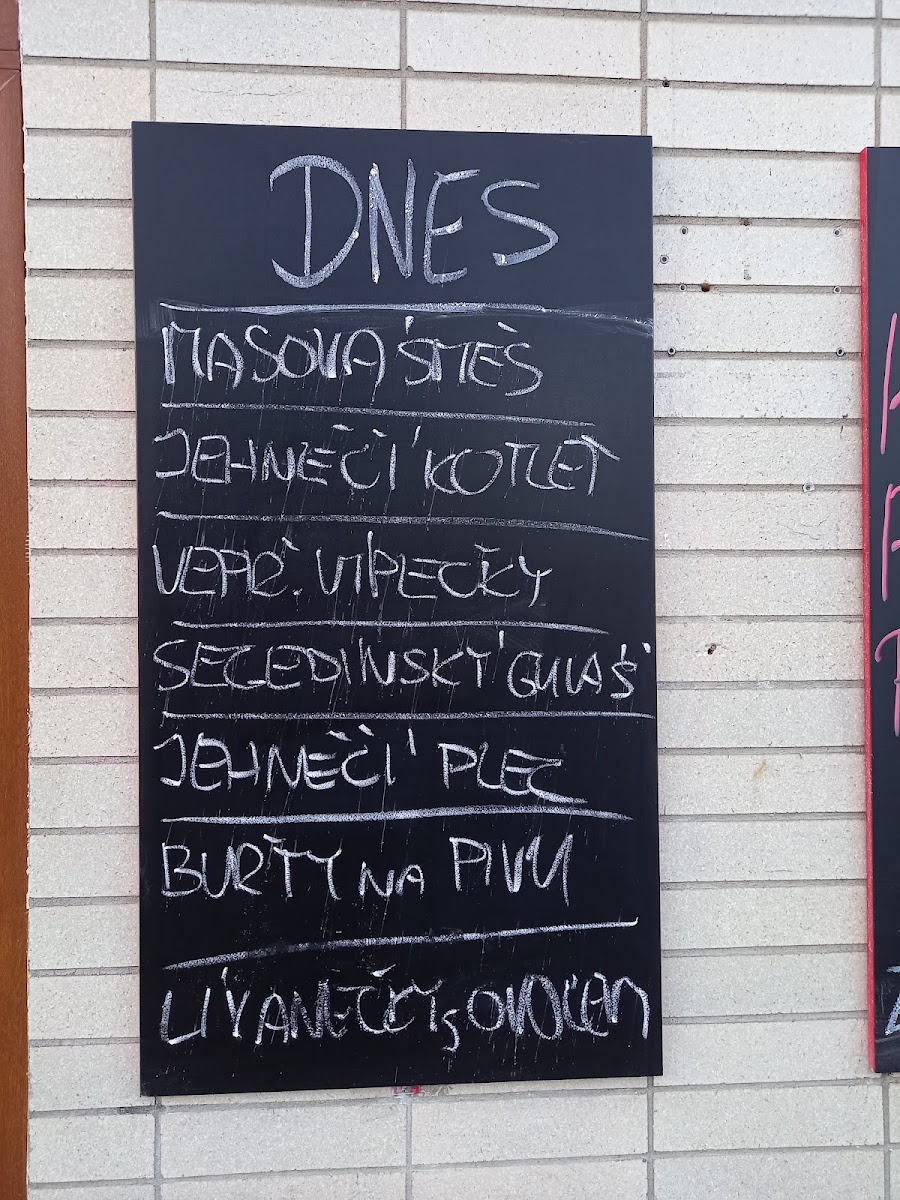 DNES
MASOVÁ SMĚS
JEHNĚČÍ KOTLET
VEPŘ. VÝPEČKY
SEGEDÍNSKÝ GULÁŠ
JEHNĚČÍ PLEC
BUŘTY NA PIVU
LÍVANEČKY S OVOCEM